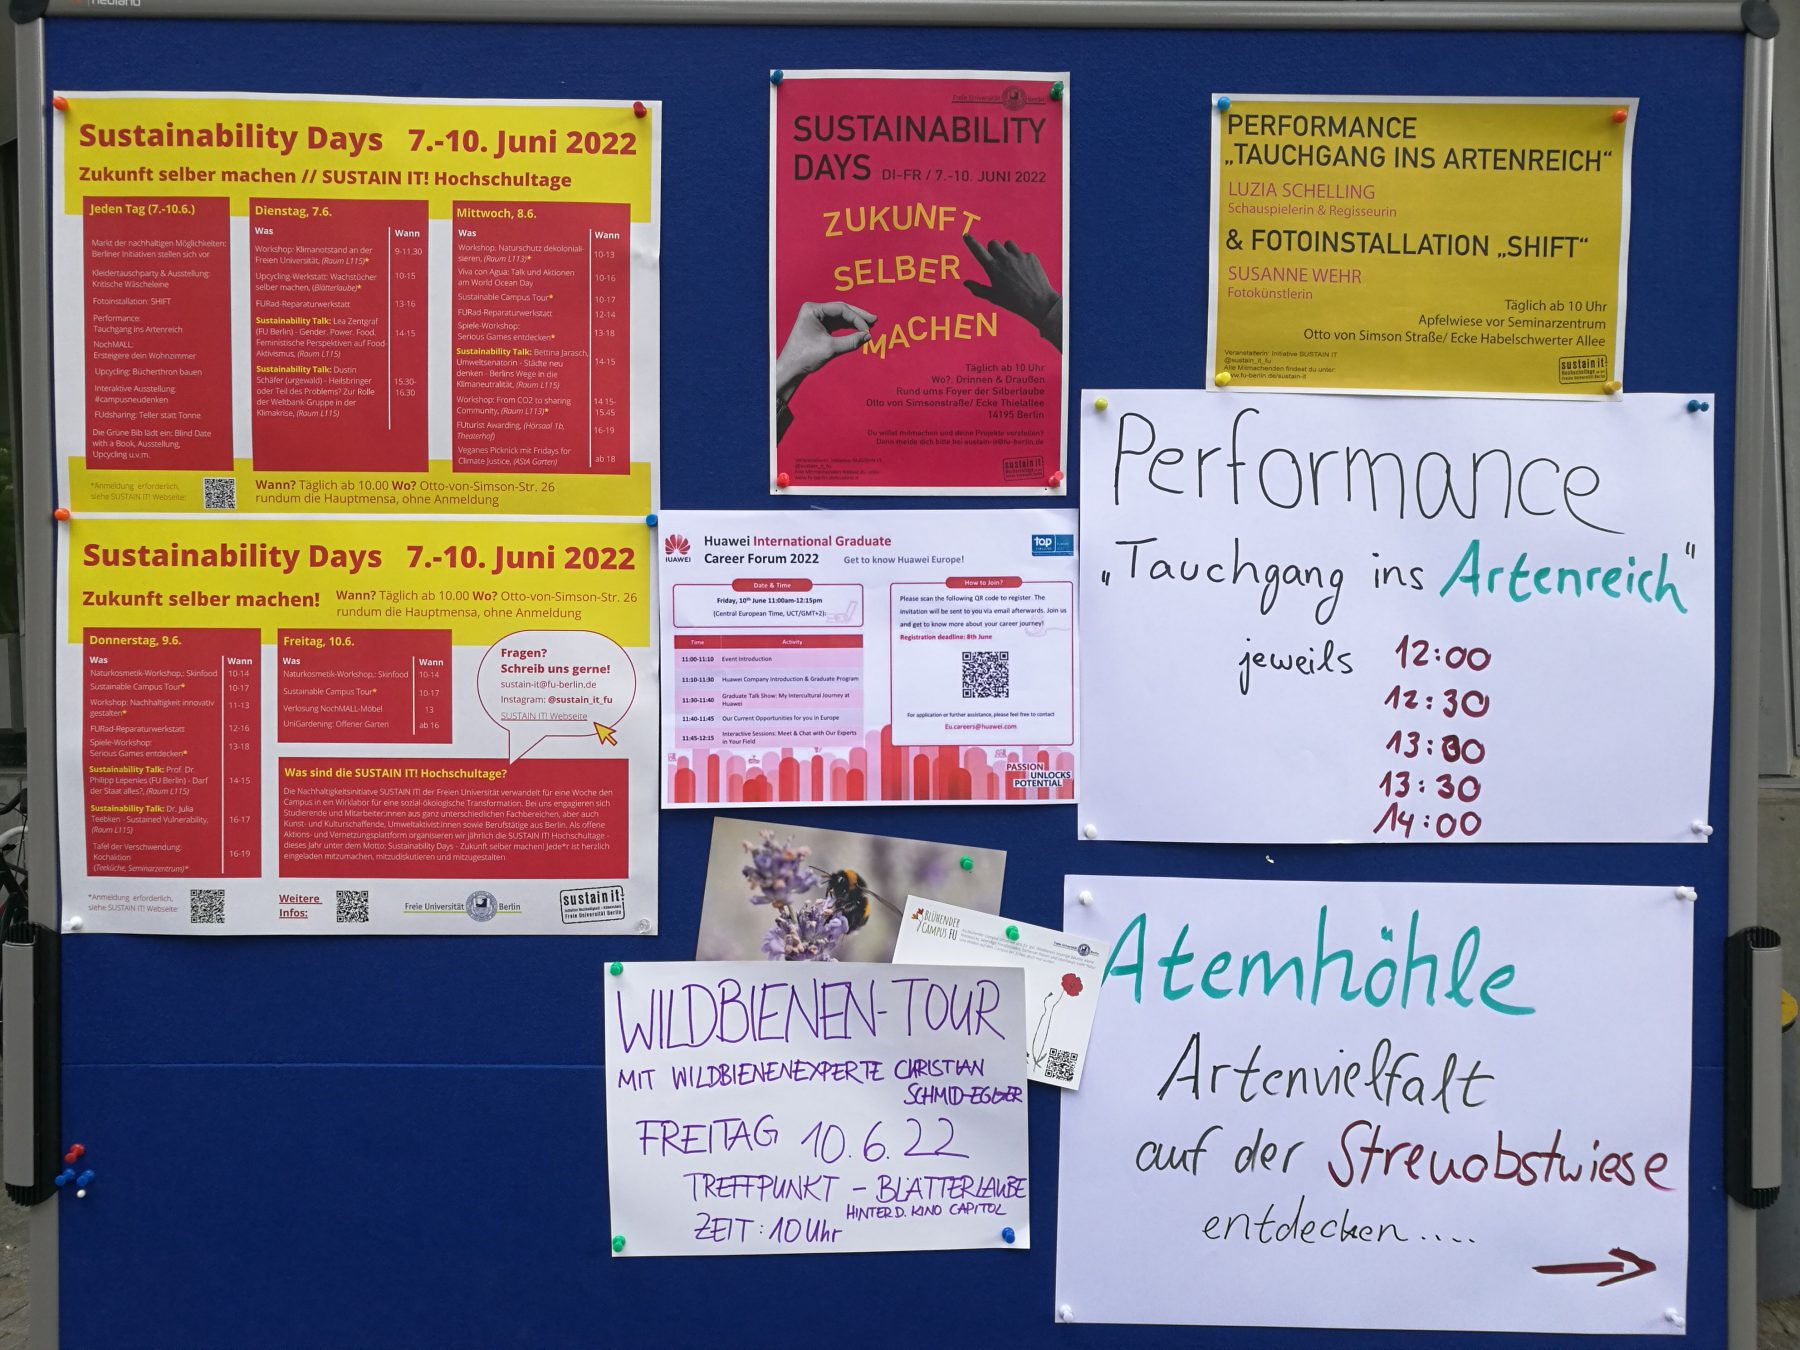 neuland
Sustainability Days 7.-10. Juni 2022
Zukunft selber machen // SUSTAIN IT! Hochschultage
Jeden Tag (7.-10.6.)
Markt der nachhaltigen Möglichkeiten:
Berliner Initiativen stellen sich vor
Kleidertauschparty & Ausstellung:
Kritische Wäscheleine
Fotoinstallation: SHIFT
Performance:
Tauchgang ins Artenreich
NochMALL:
Ersteigere dein Wohnzimmer
Upcycling: Bücherthron bauen
Interaktive Ausstellung:
#campusneudenken
FUdsharing: Teller statt Tonne
Die Grüne Bib lädt ein: Blind Date
with a Book, Ausstellung,
Upcycling u.v.m.
Dienstag, 7.6.
Was Wann
Workshop: Klimanotstand an der 9-11.30
Freien Universität, (Raum L115)*
Upcycling-Werkstatt: Wachstücher 10-15
selber machen, (Blätterlaube)*
FURad-Reparaturwerkstatt 13-16
Sustainability Talk: Lea Zentgraf
(FU Berlin) - Gender. Power. Food. 14-15
Feministische Perspektiven auf Food-
Aktivismus, (Raum L115)
Sustainability Talk: Dustin
Schäfer (urgewald) - Heilsbringer 15.30-
oder Teil des Problems? Zur Rolle 16.30
der Weltbank-Gruppe in der
Klimakrise, (Raum L115)
Mittwoch, 8.6.
Was Wann
Workshop: Naturschutz dekoloniali- 10-13
sieren, (Raum L113)*
Viva con Agua: Talk und Aktionen 10-16
am World Ocean Day
Sustainable Campus Tour* 10-17
FURad-Reparaturwerkstatt 12-14
Spiele-Workshop: 13-18
Serious Games entdecken*
Sustainability Talk: Bettina Jarasch,
Umweltsenatorin - Städte neu 14-15
denken - Berlins Wege in die
Klimaneutralität, (Raum L115)
Workshop: From CO2 to sharing 14.15-
Community, (Raum L113)* 15.45
FUturist Awarding, (Hörsaal 1b, 16-19
Theaterhof)
Veganes Picknick mit Fridays for
Climate Justice, (AStA Garten) ab 18
*Anmeldung erforderlich,
siehe SUSTAIN IT! Webseite:
Wann? Täglich ab 10.00 Wo? Otto-von-Simson-Str. 26
rundum die Hauptmensa, ohne Anmeldung
Sustainability Days 7.-10. Juni 2022
Zukunft selber machen! Wann? Täglich ab 10.00 Wo? Otto-von-Simson-Str. 26
rundum die Hauptmensa, ohne Anmeldung
Donnerstag, 9.6.
Was Wann
Naturkosmetik-Workshop,: Skinfood 10-14
Sustainable Campus Tour* 10-17
Workshop: Nachhaltigkeit innovativ 11-13
gestalten*
FURad-Reparaturwerkstatt 12-16
Spiele-Workshop: 13-18
Serious Games entdecken*
Sustainability Talk: Prof. Dr.
Philipp Lepenies (FU Berlin) - Darf 14-15
der Staat alles?, (Raum L115)
Sustainability Talk: Dr. Julia
Teebken - Sustained Vulnerability, 16-17
(Raum L115)
Tafel der Verschwendung:
Kochaktion 16-19
(Teeküche, Seminarzentrum)*
Freitag, 10.6.
Was Wann
Naturkosmetik-Workshop,: Skinfood 10-14
Sustainable Campus Tour* 10-17
Verlosung NochMALL-Möbel 13
UniGardening: Offener Garten ab 16
Fragen?
Schreib uns gerne!
sustain-it@fu-berlin.de
Instagram: @sustain_it_fu
SUSTAIN IT! Webseite
Was sind die SUSTAIN IT! Hochschultage?
Die Nachhaltigkeitsinitiative SUSTAIN IT! der Freien Universität verwandelt für eine Woche den
Campus in ein Wirklabor für eine sozial-ökologische Transformation. Bei uns engagieren sich
Studierende und Mitarbeiter:innen aus ganz unterschiedlichen Fachbereichen, aber auch
Kunst- und Kulturschaffende, Umweltaktivist:innen sowie Berufstätige aus Berlin. Als offene
Aktions- und Vernetzungsplattform organisieren wir jährlich die SUSTAIN IT! Hochschultage -
dieses Jahr unter dem Motto: Sustainability Days - Zukunft selber machen! Jede*r ist herzlich
eingeladen mitzumachen, mitzudiskutieren und mitzugestalten.
*Anmeldung erforderlich,
siehe SUSTAIN IT! Webseite:
Weitere
Infos:
Freie Universität Berlin
sustain it!
Freie Universität Berlin
Freie Universität Berlin
SUSTAINABILITY
DAYS DI-FR / 7.-10. JUNI 2022
ZUKUNFT
SELBER
MACHEN
Täglich ab 10 Uhr
Wo?: Drinnen & Draußen
Rund ums Foyer der Silberlaube
Otto von Simsonstraße/ Ecke Thielallee
14195 Berlin
Du willst mitmachen und deine Projekte vorstellen?
Dann melde dich bitte bei sustain-it@fu-berlin.de
Veranstalterin: Initiative SUSTAIN IT
@sustain_it_fu
sustain it!
PERFORMANCE
„TAUCHGANG INS ARTENREICH“
LUZIA SCHELLING
Schauspielerin & Regisseurin
& FOTOINSTALLATION „SHIFT“
SUSANNE WEHR
Fotokünstlerin
Täglich ab 10 Uhr
Apfelwiese vor Seminarzentrum
Otto von Simson Straße/ Ecke Habelschwerter Allee
Veranstalterin: Initiative SUSTAIN IT
@sustain_it_fu
Alle Mitmachenden findest du unter:
www.fu-berlin.de/sustain-it
sustain it!
Huawei International Graduate
Career Forum 2022 Get to know Huawei Europe!
top
Date & Time
Friday, 10th June 11:00am-12:15pm
(Central European Time, UCT/GMT+2):
Time Activity
11:00-11:10 Event Introduction
11:10-11:30 Huawei Company Introduction & Graduate Program
11:30-11:40 Graduate Talk Show: My Intercultural Journey at
Huawei
11:40-11:45 Our Current Opportunities for you in Europe
11:45-12:15 Interactive Sessions: Meet & Chat with Our Experts
in Your Field
How to Join?
Please scan the following QR code to register. The
invitation will be sent to you via email afterwards. Join us
and get to know more about your career journey!
Registration deadline: 8th June
For application or further assistance, please feel free to contact
Eu.careers@huawei.com
PASSION
UNLOCKS
POTENTIAL
Performance
„Tauchgang ins Artenreich“
jeweils 12:00
12:30
13:00
13:30
14:00
BLÜHENDER
CAMPUS FU
WILDBIENEN-TOUR
MIT WILDBIENENEXPERTE CHRISTIAN
SCHMID-EGGER
FREITAG 10.6.22
TREFFPUNKT - BLÄTTERLAUBE
HINTER D. KINO CAPITOL
ZEIT: 10 Uhr
Atemhöhle
Artenvielfalt
auf der Streuobstwiese
entdecken....